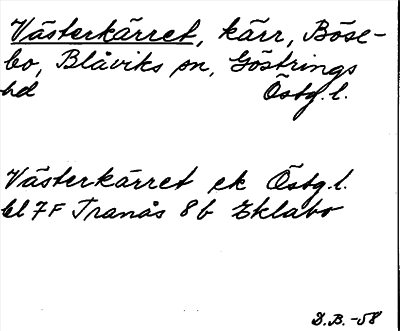 Västerkärret, kärr, Böse-
bo, Blåviks sn, Göstrings
hd Östg. l.
Västerkärret ek Östg. l.
bl 7F Tranås 8b Eklabo
D.B. -58